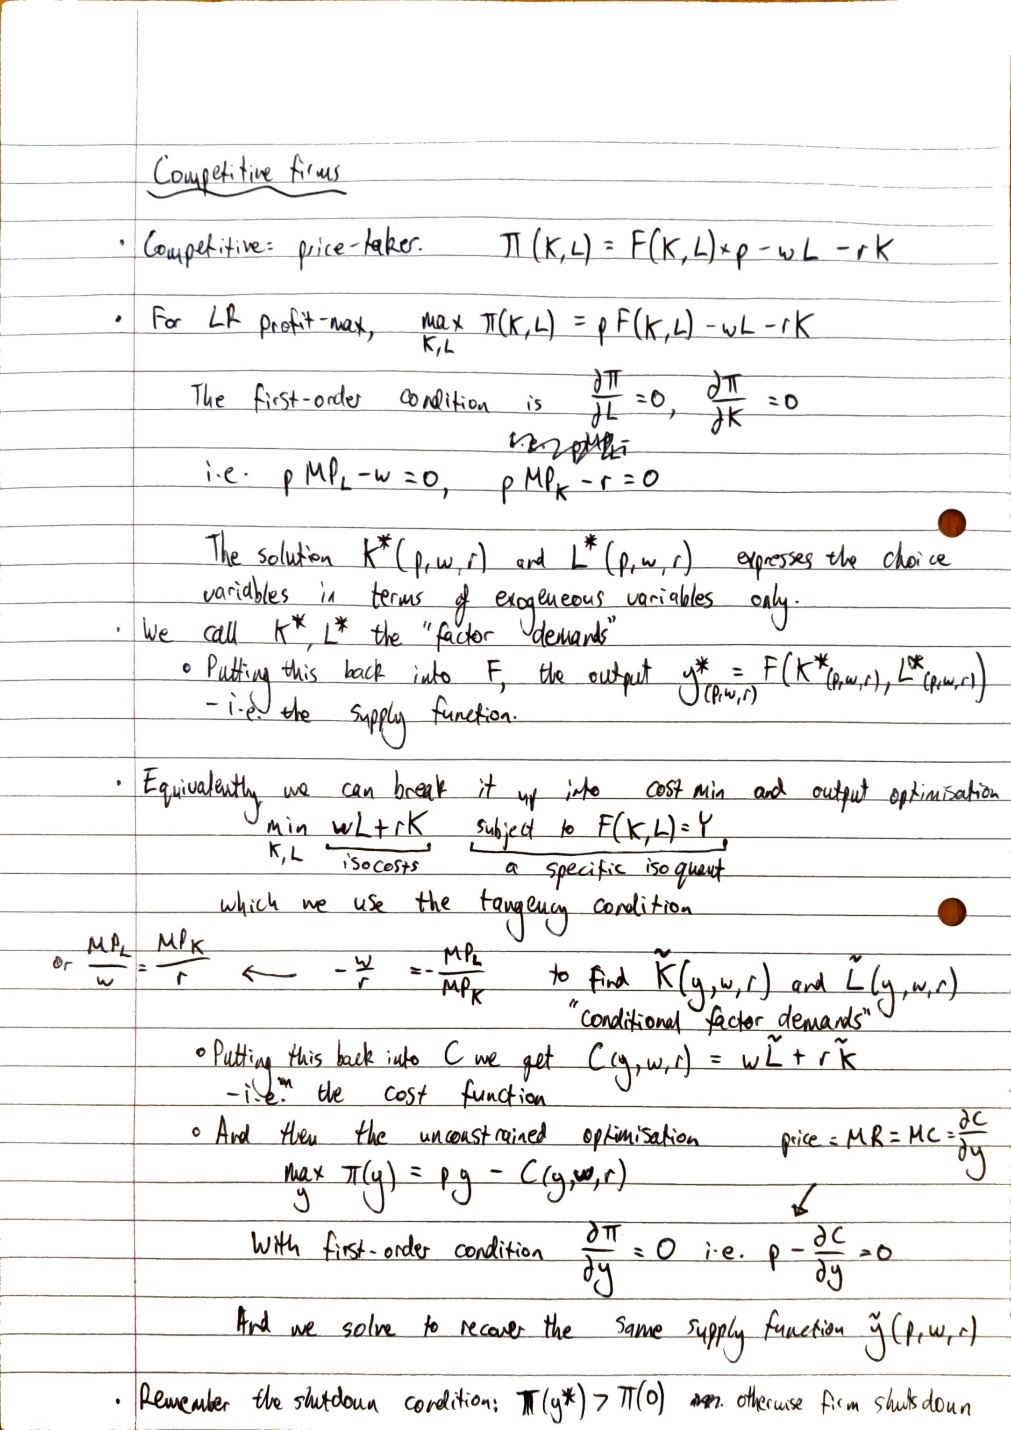 Competitive firms
· Competitive = price-taker. π(K,L) = F(K,L)×p - wL - rK
· For LR profit-max, max K,L π(K,L) = pF(K,L) - wL - rK
The first-order condition is ∂π/∂L = 0, ∂π/∂K = 0
i.e. p MP_L - w = 0, p MP_K - r = 0
The solution K*(p,w,r) and L*(p,w,r) expresses the choice
variables in terms of exogeneous variables only.
· We call K*, L* the "factor demands"
∘ Putting this back into F, the output y*(p,w,r) = F(K*(p,w,r), L*(p,w,r))
- i.e. the supply function.
· Equivalently we can break it up into cost min and output optimisation
min K,L wL + rK subject to F(K,L) = Y
isocosts a specific isoquant
which we use the tangency condition
or MP_L/w = MP_K/r ← -w/r = -MP_L/MP_K to find K̃(y,w,r) and L̃(y,w,r)
"conditional factor demands"
∘ Putting this back into C we get C(y,w,r) = wL̃ + rK̃
- i.e. the cost function
∘ And then the unconstrained optimisation price = MR = MC = ∂C/∂y
max y π(y) = py - C(y,w,r) ↙
With first-order condition ∂π/∂y = 0 i.e. p - ∂C/∂y = 0
And we solve to recover the same supply function ỹ(p,w,r)
· Remember the shutdown condition: π(y*) > π(0) otherwise firm shuts down